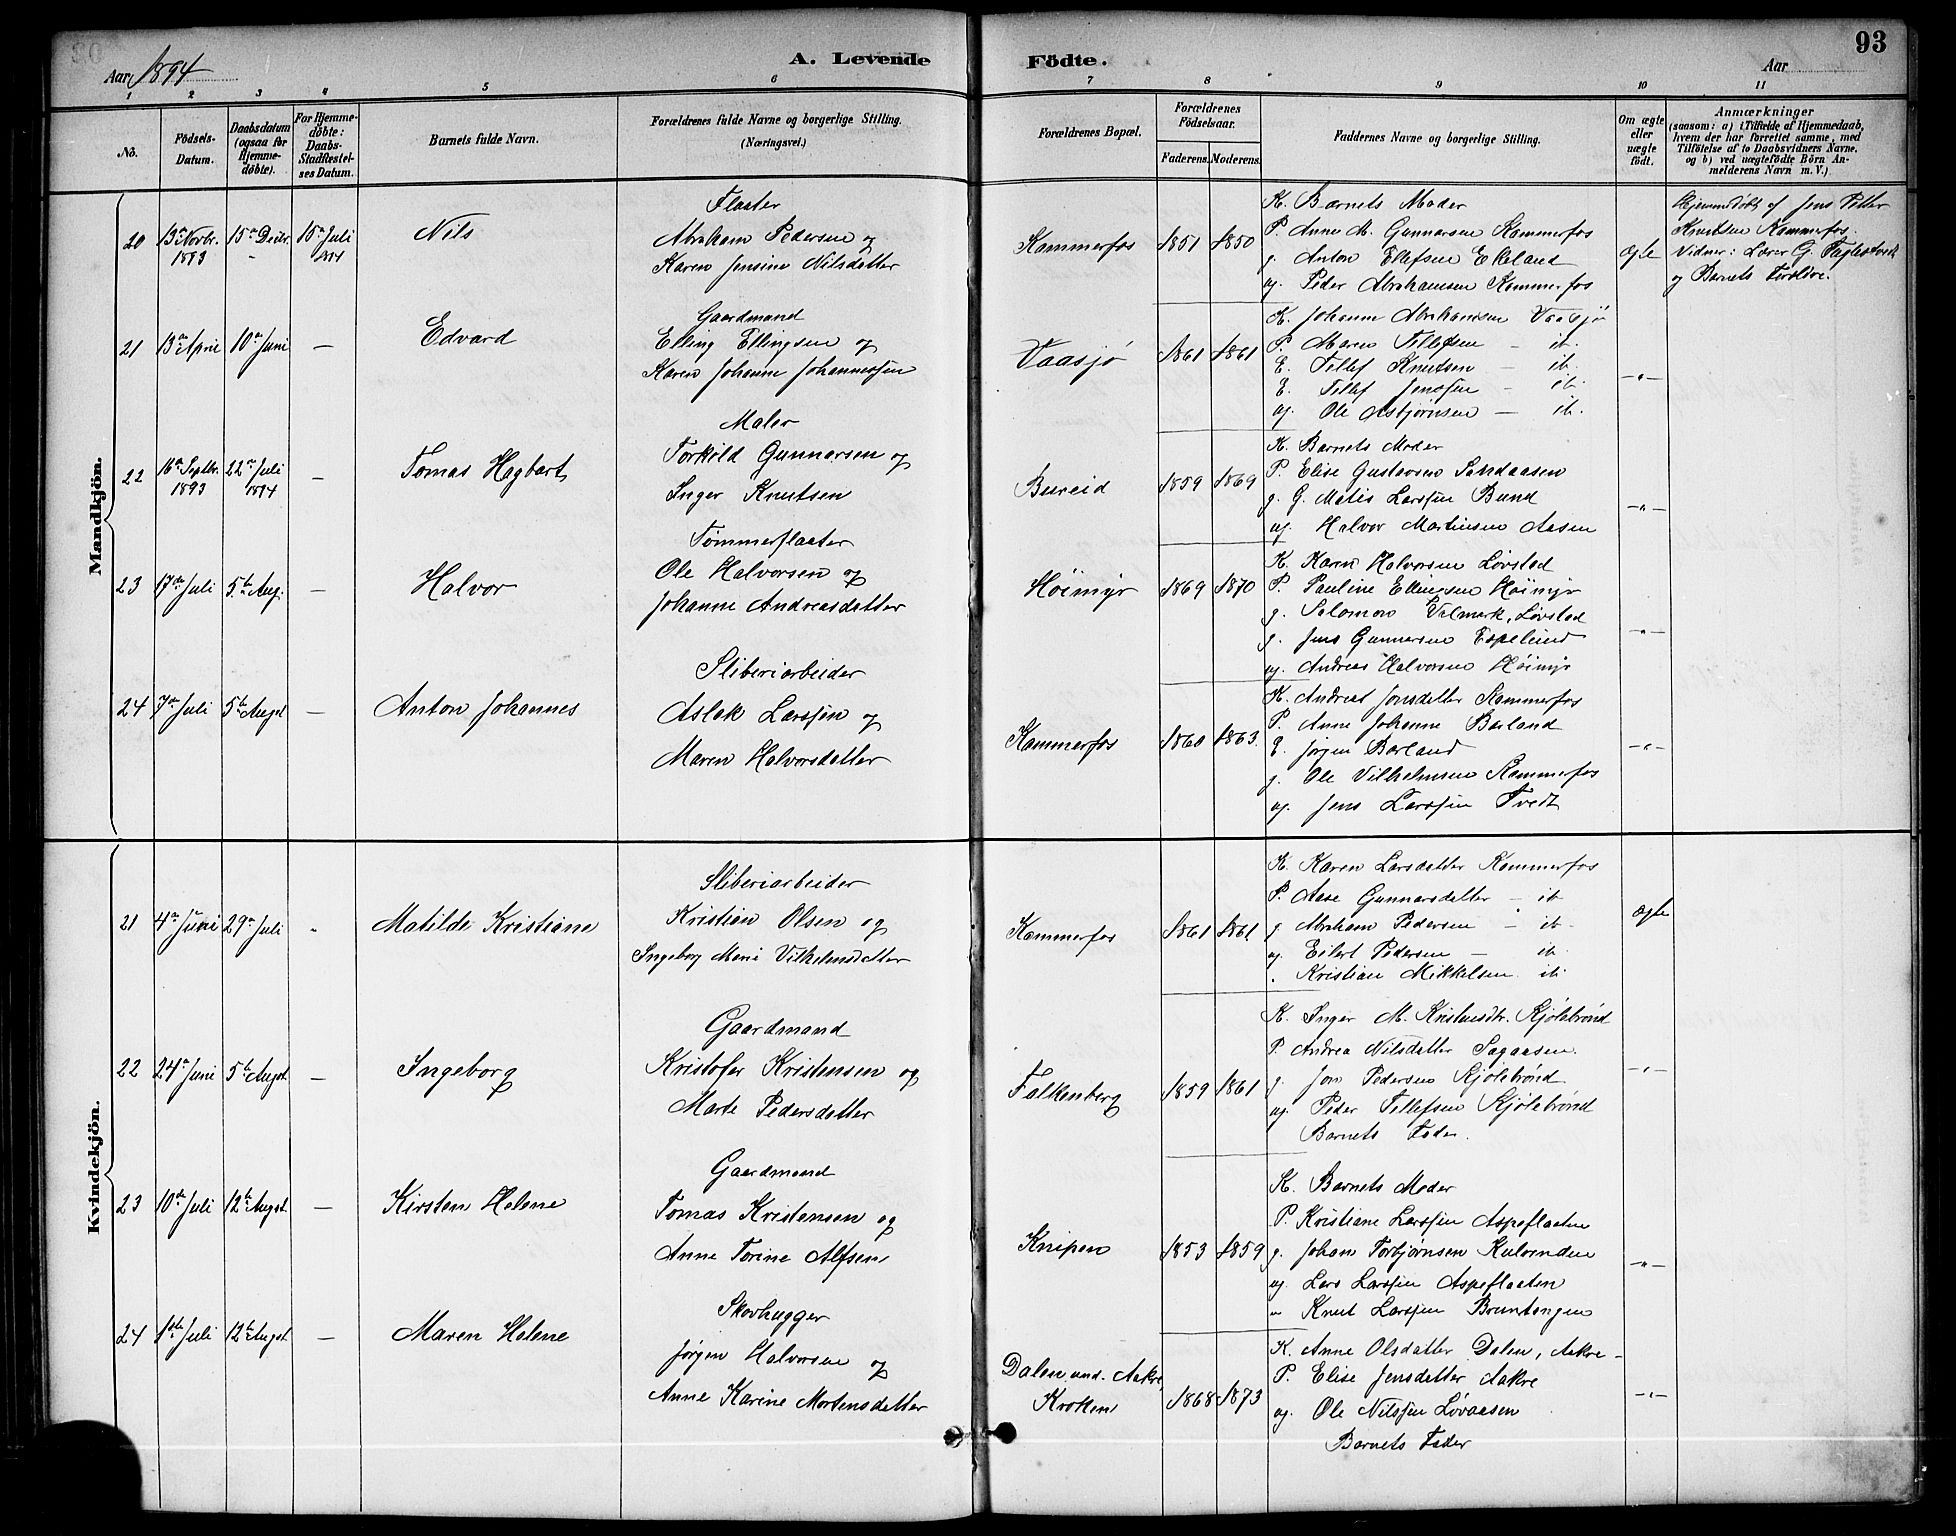 Aar 1894
A. Levende
Födte.
93
Aar
1 2 3 4 5 6 7 8 9 10 11
Nô.
Födsels-Datum.
Daabsdatum (ogsaa for Hjemmedöbte).
For Hjemmedöbte: Daabs-Stadfæstelses Datum.
Barnets fulde Navn.
Forældrenes fulde Navne og borgerlige Stilling. (Næringsvei.)
Forældrenes Bopæl.
Forældrenes Födselsaar.
Faderens. Moderens.
Faddernes Navne og borgerlige Stilling.
Om ægte eller uægte födt.
Anmærkninger (saasom: a) i Tilfælde af Hjemmedaab, hvem der har forrettet samme, med Tilföielse af to Daabsvidners Navne, og b) ved uægtefödte Börn Anmelderens Navn m.V.)
Mandkjön.
20 13de Novbr. 1893 15de Decbr. 15de Juli 1894
Nils
Flaater
Abraham Pedersen og
Karen Jensine Nilsdatter
Kammerfos 1851 1850
K. Barnets Moder
P. Anne M. Gunnarsen Kammerfos
g. Anton Ellefsen Ekeland
og. Peder Abrahamsen Kammerfos
ægte
Hjemmedøbt af Jens Petter
Knutsen Kammerfos.
Vidner: Lærer G.
og Barnets Forældre.
21 13de April 10de Juni —
Edvard
Gaardmand
Elling Ellingsen og
Karen Johanne Johannessen
Vaasjø 1861 1861
K. Johanne Abrahamsen Vaasjø
P. Maren Tellefsen — ib.
E. Tellef Knutsen — ib.
E. Tellef Jenssen — ib.
og. Ole Asbjørnsen — ib.
—"—
22 16de Septbr. 1893 22de Juli 1894 —
Tomas Hagbart
Maler
Torkild Gunnarsen og
Inger Knutsen
Bureid 1859 1869
K. Barnets Moder
P. Elise Gustavsen Sandaasen
g. G. Matis Larssen Bund
og. Halvor Martinsen Aasen
—"—
23 17de Juli 5te Aug. —
Halvor
Tømmerflaater
Ole Halvorsen og
Johanne Andreasdatter
Høimyr 1869 1870
K. Karen Halvorsen Løvstad
P. Pauline Ellingsen Høimyr
g. Salomon Valmark, Løvstad
g. Jens Gunnarsen Espelund
og. Andreas Halvorsen Høimyr
—"—
24 7de Juli 5te Augst —
Anton Johannes
Sliberiarbeider
Aslak Larssen og
Maren Halvorsdatter
Kammerfos 1860 1863.
K. Andrea Jonsdatter Kammerfos
P. Anne Johanne Barland
E. Jørgen Barland
g. Ole Vilhelmsen Kammerfos
og. Jens Larssen Tvedt
—"—
Kvindekjön.
21 4de Juni 29de Juli "
Matilde Kristiane
Sliberiarbeider
Kristian Olsen og
Ingeborg Marie Vilhelmsdatter
Kammerfos 1861 1861
K. Karen Larsdatter Kammerfos
P. Aase Gunnarsdatter — ib
g. Abraham Pedersen — ib.
og. Eilert Pedersen — ib.
" Kristian Mikkelsen ib.
ægte
22 24de Juni 5te Augst. —
Ingeborg
Gaardmand
Kristofer Kristensen og
Marte Pedersdatter
Falkenberg 1859 1861
K. Inger M. Kristensdtr. Kjølebrønd
P. Andrea Nilsdatter Sagaasen.
g. Jon Pedersen Kjølebrønd
og. Peder Tellefsen Kjølebrønd
Barnets Fader.
—"—
23 10de Juli 12te Augst. —
Kirsten Helene
Gaardmand
Tomas Kristensen og
Anne Torine Alfsen
Knipen 1853 1859
K. Barnets Moder
P. Kristiane Larssen Aspeflaaten
g. Johan Torbjørnsen Kulvenden
og. Lars Larssen Aspeflaaten
" Knut Larssen Bruntangen
—"—
24 1ste Juli 12te Augst. —
Maren Helene
Skovhugger
Jørgen Halvorsen og
Anne Karine Mortensdatter
Dalen und. Aakre,
Kroken 1868 1873
K. Anne Olsdatter Dalen, Aakre
P. Elise Jensdatter Aakre
og. Ole Nilssen Løvaasen
Barnets Fader
—"—